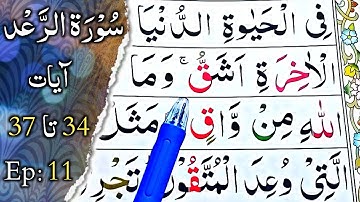 سُوْرَةُ الرَّعْد
آیات
34 تا 37
Ep: 11
فِی الْحَیٰوةِ الدُّنْیَا
الْاٰخِرَةِ اَشَقُّ ۚ وَمَا
اللّٰهِ مِنْ وَّاقٍ مَثَلُ
الَّتِیْ وُعِدَ الْمُتَّقُوْنَ تَجْرِ